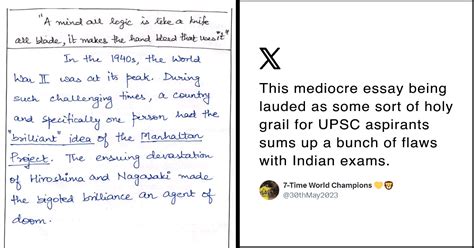 "A mind all logic is like a knife
all blade, it makes the hand bleed that uses it"
In the 1940s, the World
War II was at its peak. During
such challenging times, a country
and specifically one person had the
"brilliant" idea of the Manhattan
Project. The ensuing devastation
of Hiroshima and Nagasaki made
the bigoted brilliance an agent of
doom.
X
This mediocre essay being
lauded as some sort of holy
grail for UPSC aspirants
sums up a bunch of flaws
with Indian exams.
7-Time World Champions 💛🦁
@30thMay2023